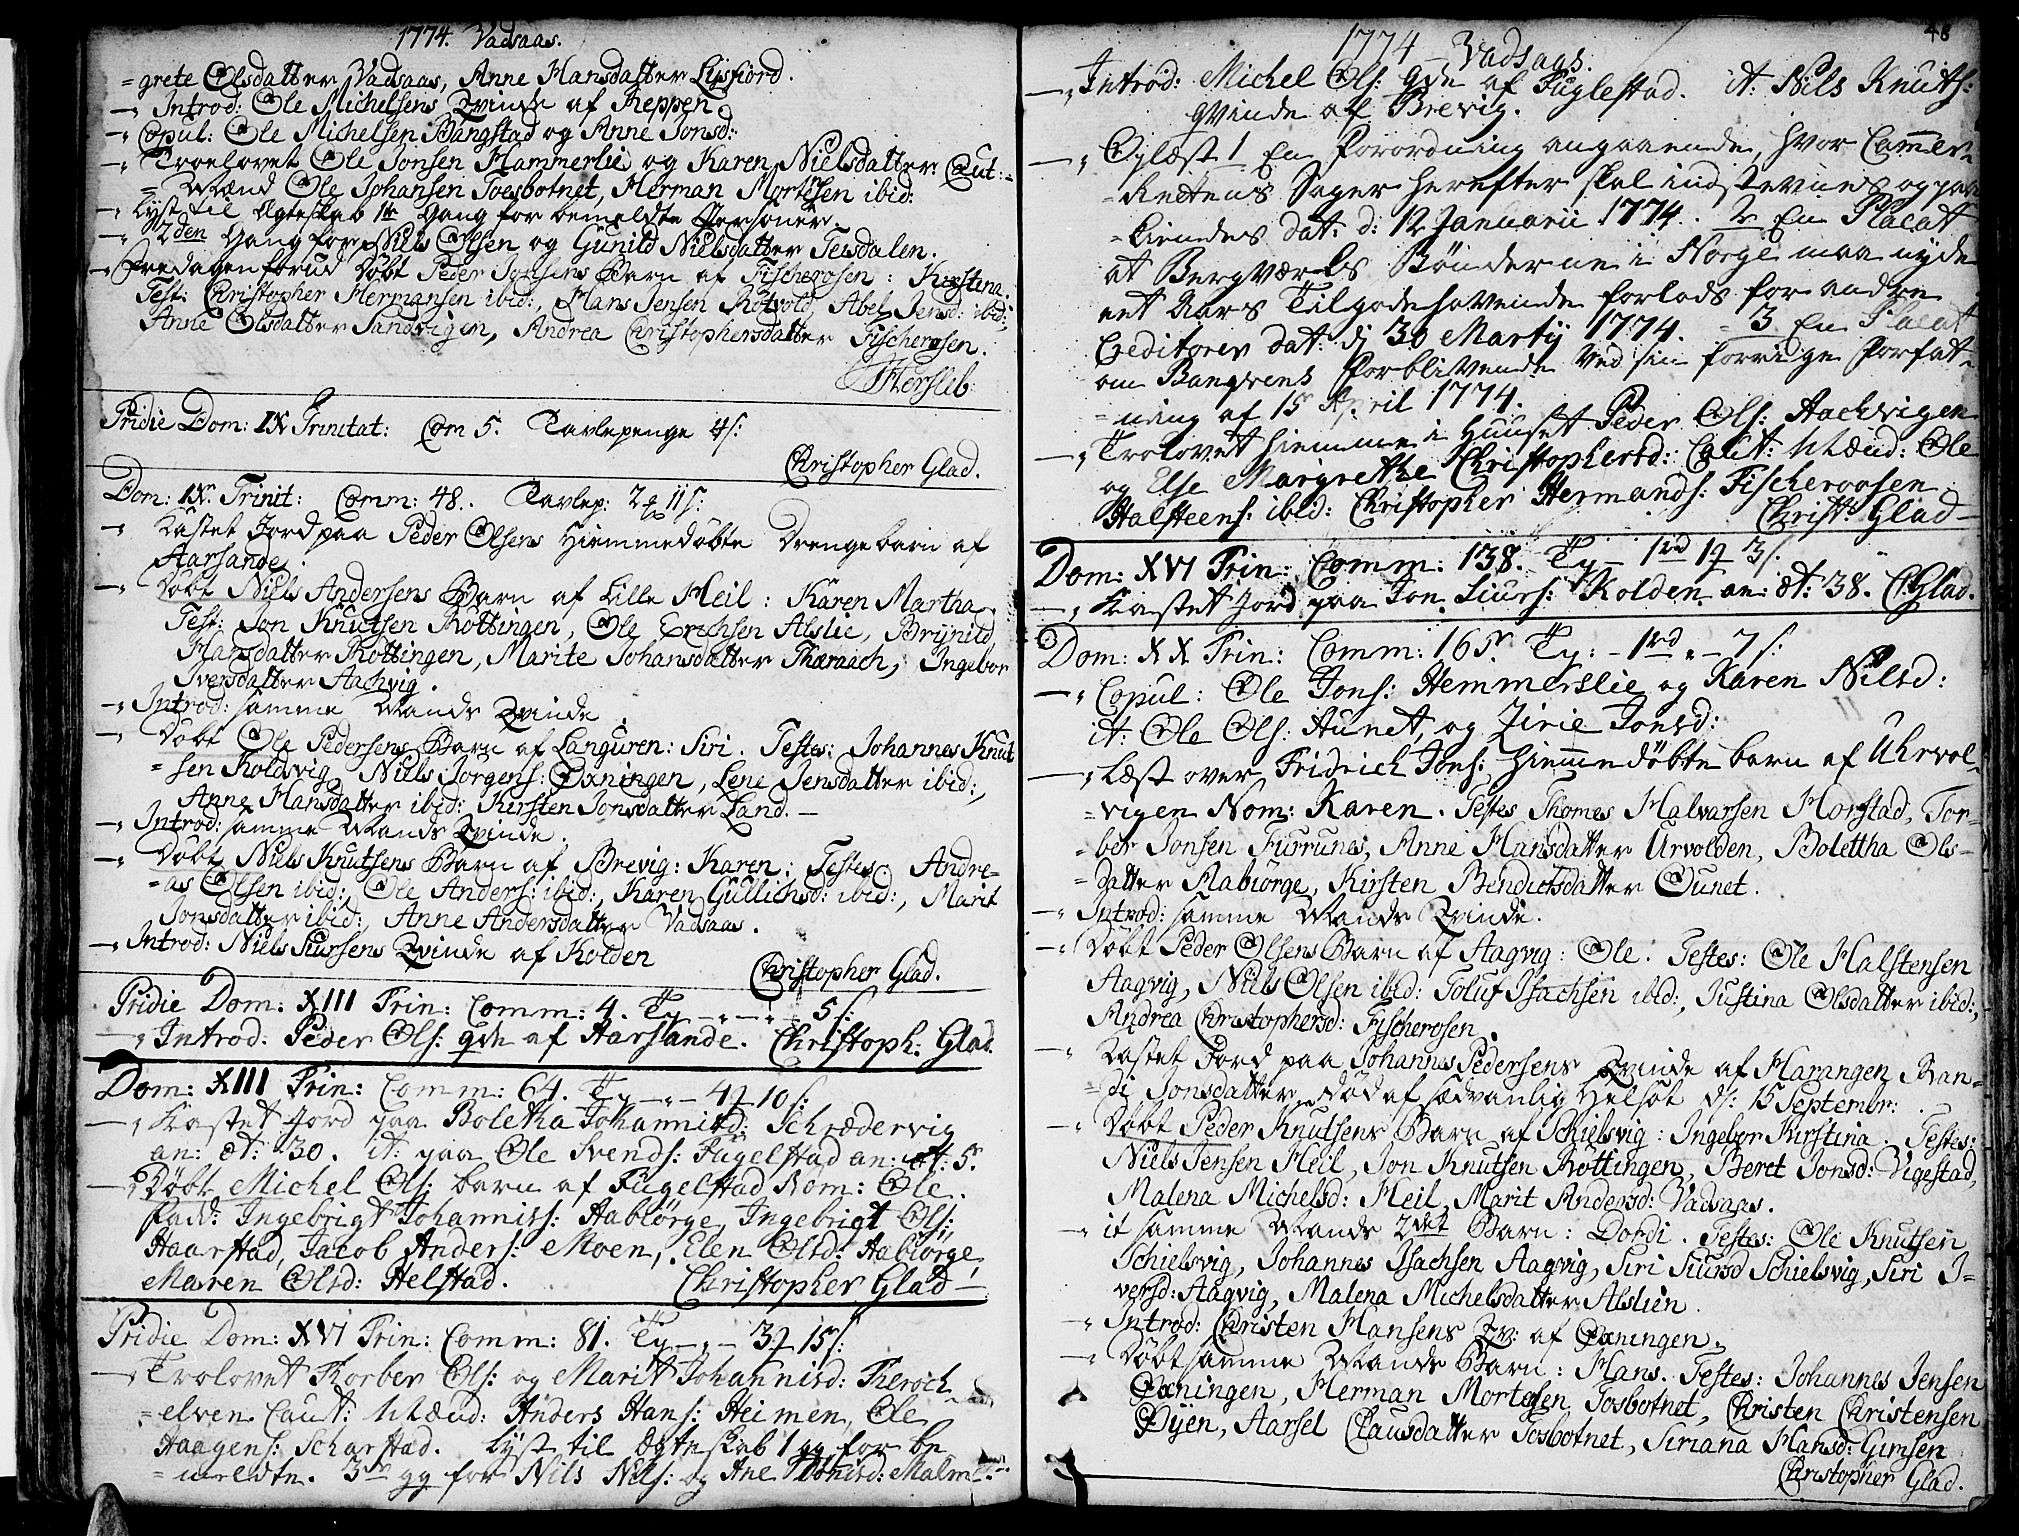 1774. Vadsaas.
=grete Olsdatter Vadsaas, Anne Hansdatter Lysfiord.
-" Introd: Ole Michelsens Qvinde af Reppen
-" Copul: Ole Michelsen Bangstad og Anne Jonsd:
-" Troelovet Ole Jonsen Hammerlie og Karen Nielsdatter Caut:=
= Mænd Ole Johansen Tosbotnet, Herman Mortesen ibid:
-" Lyst til Ægteskab 1te Gang for bemeldte Personer
-" 2den Gang for Niels Olsen og Gunild Nielsdatter Teisdalen.
-" Fredagen forud Døbt Peder Jonsens Barn af Fischerosen: Kirstina.
Test: Christopher Hermansen ibid:, Hans Jensen Rotvold, Abel Jensd: ibid:,
Anne Olsdatter Sandvigen, Andrea Christophersdatter Fischerosen.
Hersleb.
Pridie Dom: IX Trinitat: Com 5. Tavlepenge 4 s:
Christopher Glad.
Dom: IX. Trinit: Comm: 48. Tavlep: 2 11 s:
-" Kastet Jord paa Peder Olsens Hiemmedøbte Drengebarn af
Aarsande.
-" Døbt Niels Andersens Barn af Lille Heil: Karen Martha
Test: Jon Knutsen Røttingen, Ole Erichsen Alslie, Brynild
Hansdatter Rottingen, Marite Johansdatter Thæraach, Ingebor
Iversdatter Aachvig.
-" Introd: samme Mands Qvinde.
-" Døbt Ole Pedersens Barn af Languren: Siri. Testes: Johannes Knut
=sen Koldsvig, Niels Jørgens: Oxningen, Lene Jensdatter ibid:,
Anne Hansdatter ibid: Kirsten Jonsdatter Land.-
-" Introd: samme Mands Qvinde.
-" Døbt Niels Knutsens Barn af Brevig: Karen: Testes Andre=
=as Olsen ibid:, Ole Anders: ibid:, Karen Gullichsd: ibid:, Marit
Jonsdatter ibid:, Anne Andersdatter Vadsaas.
-" Introd: Niels Siursens Qvinde af Kolden
Christopher Glad.
Pridie Dom: XIII Trin: Comm: 4. Ty -"-"- 5 s:
-" Introd: Peder Ols: qde af Aarsande. Christoph: Glad.
Dom: XIII Trin: Comm: 64. Ty -"- 4 10 s:
-" Kastet Jord paa Boletha Johannisd: Schrædervig
an: æt: 30. it: paa Ole Svends: Fugelstad an: æt: 5.
-" Døbt Michel Ols: barn af Fugelstad Nom: Ole.
fadd: Ingebrigt Johanniss: Aabiørge, Ingebrigt Ols:
Haarstad, Jacob Anders: Moen, Elen Olsd: Aabiørge,
Maren Olsd: Helstad. Christopher Glad-
Pridie Dom: XVI Trin: Comm: 81. Ty -"- 3 15 s:
-" Trolovet Torber Ols: og Marit Johannisd: Theroch=
=elven. Caut: Mænd: Anders Hans: Heimen, Ole
Haagens: Scharstad. Lyst til Ægteskab 1 gg for be
=meldte. 3de gg for Nils Nils: og Ane Malm
48
1774 - Vadsaas.
-" Introd: Michel Ols: qde af Fuglestad. it: Nils Knuts:
qvinde af Brevig.
-" Oplæst 1 En Forordning angaaende, hvor Camer=
=Rettens Sager herefter skal indstevnes og paa
=kiendes dat: d: 12 Januarii 1774. 2 En Placat
at Bergværks Bønderne i Norge maa nyde
et Aars Tilgodehavende forlods for andre
Creditorer dat: d: 30 Martij 1774. - 3 En Placat
om Banqvens Forblivende ved sin forrige Forfat=
=ning af 15 April 1774.
-" Trolovet hiemme i Huuset Peder Ols: Aachvigen
og Else Margrethe Christophersd: Caut: Mænd: Ole
Halsteens: ibid: Christopher Hermands: Fischeroosen.
Christ: Glad-
Dom: XVI Trin: Comm: 138. Ty - 1rd 1 3 s:
-" Kastet Jord paa Jon Siurs: Kolden an: æt: 38. C: Glad.
Dom: XX Trin: Comm: 165. Ty: - 1rd "- 7 s:
-" Copul: Ole Jons: Hemmerslie og Karen Nilsd:
it: Ole Ols: Aunet, og Zirie Jonsd:
-" Læst over Fridrich Jons: Hiemmedøbte barn af Uhrvol=
=vigen Nom: Karen. Testes Thomes Halvarsen Horstad, Tor=
=ber Jonsen Furrunes, Anne Hansdatter Urvolden, Bolettha Ols=
=datter Aabiørge, Kirsten Bendictsdatter Ounet.
-" Introd: samme Mands Qvinde.
-" Døbt Peder Olsens Barn af Aagvig: Ole. Testes: Ole Halstensen
Aagvig, Niels Olsen ibid: Toluf Isachsen ibid:, Justina Olsdatter ibid:,
Andrea Christophersd: Fischerosen.
-" Kastet Jord paa Johannes Pedersens Qvinde af Harangen Ran=
=di Jonsdatter død af sædvanlig Helsot d: 15 Septembr:
-" Døbt Peder Knutsens Barn af Schielsvig: Ingebor Kirstina. Testes:
Niels Jensen Heil, Jon Knutsen Røttingen, Beret Jonsd: Vigestad,
Malena Michelsd: Heil, Marit Andersd: Vadsaas.
-" it samme Mands 2det Barn: Dordi. Testes: Ole Knutsen
Schielsvig, Johannes Isachsen Aagvig, Siri Siursd Schielsvig, Siri I=
versd: Aagvig, Malena Michelsdatter Alslien.
-" Introd: Christen Hansens Qv: af Oxningen.
-" Døbt samme Mands Barn: Hans. Testes: Johannes Jensen
Oxningen, Herman Mortesen Tosbotnet, Christen Christensen
Øyen, Aarsel Clausdatter Tosbotnet, Siriana Hansd: Gimsen
Christopher Glad.